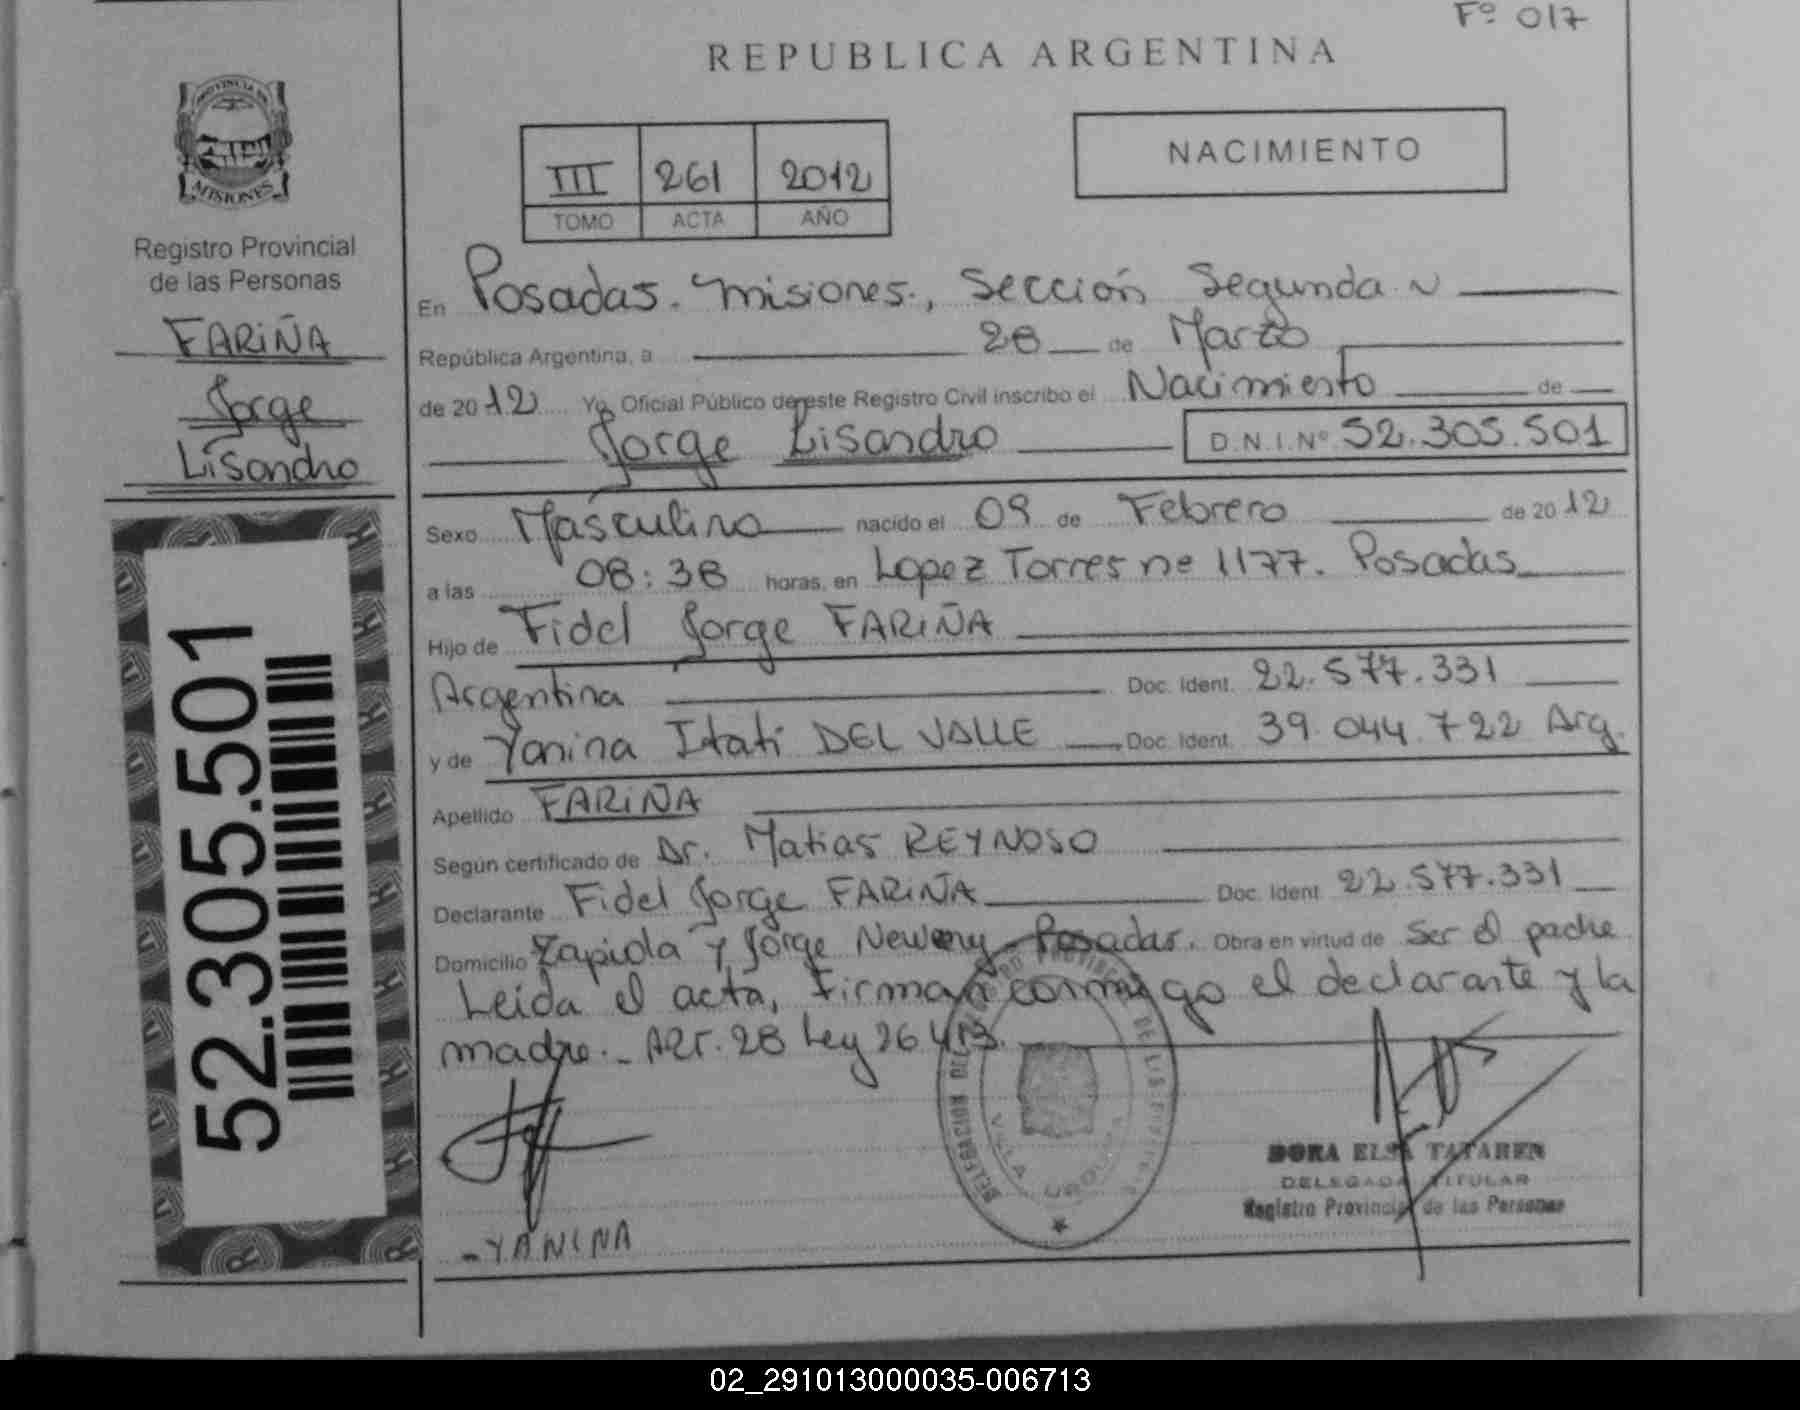 Fº 017
REPUBLICA ARGENTINA
PROVINCIA DE
MISIONES
III 261 2012
TOMO ACTA AÑO
NACIMIENTO
Registro Provincial
de las Personas
FARIÑA
Jorge
Lisandro
52.305.501
En Posadas. Misiones., Sección Segunda
República Argentina, a 28 de Marzo
de 2012 Yo, Oficial Público de este Registro Civil inscribo el Nacimiento de
Jorge Lisandro D.N.I.Nº 52.305.501
Sexo Masculino nacido el 09 de Febrero de 2012
a las 08:38 horas, en Lopez Torres nº 1177. Posadas
Hijo de Fidel Jorge FARIÑA
Argentina Doc. Ident. 22.577.331
y de Yanina Itati DEL VALLE Doc. Ident. 39.044.722 Arg.
Apellido FARIÑA
Según certificado de Dr. Matias REYNOSO
Declarante Fidel Jorge FARIÑA Doc. Ident 22.577.331
Domicilio Zapiola y Jorge Newery - Posadas. Obra en virtud de ser el padre
Leida el acta, Firman conmigo el declarante y la
madre.- ART. 28 Ley 26413.
DORA ELSA TATAREN
DELEGADA TITULAR
Registro Provincial de las Personas
VILLA URQUIZA
- YANINA
02_291013000035-006713